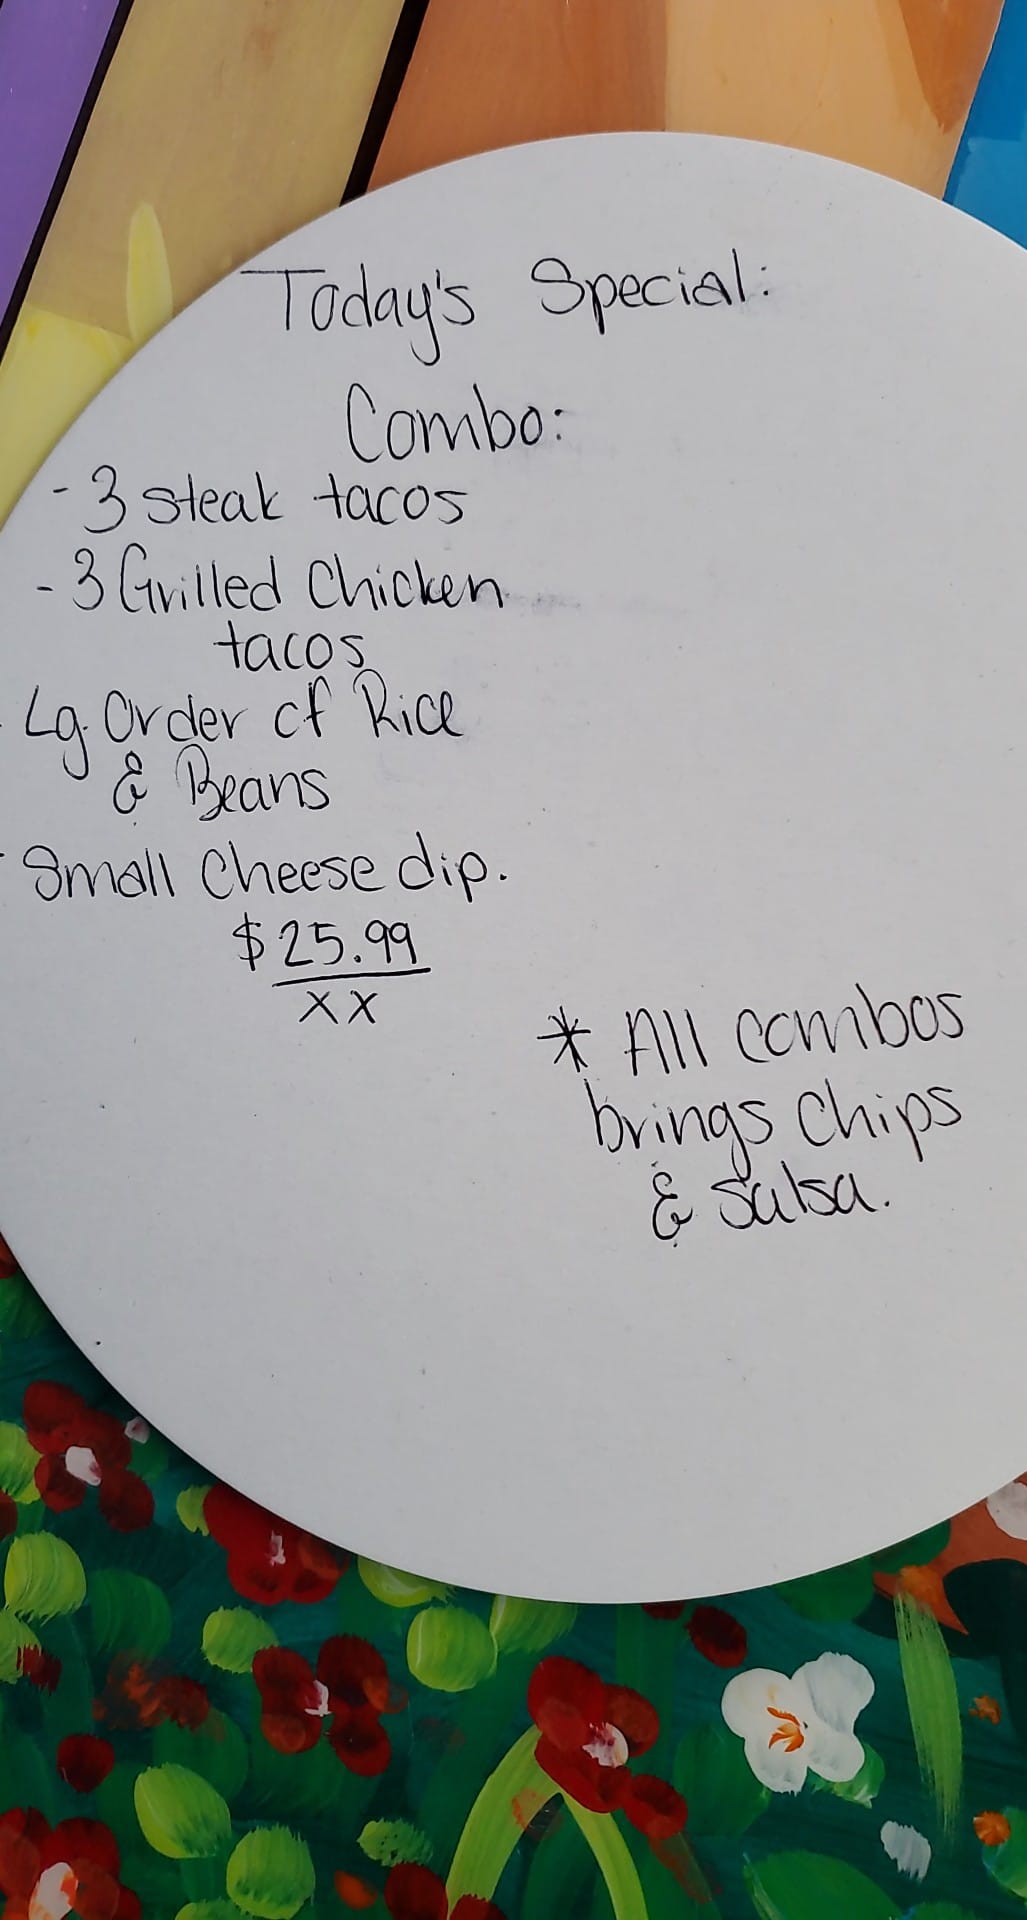 Today's Special:
Combo:
- 3 steak tacos
- 3 Grilled Chicken
tacos
- Lg. Order of Rice
& Beans
- Small Cheese dip.
$25.99
xx
* All combos
brings Chips
& Salsa.